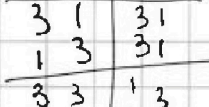 3 1 31
1 3 31
3 3 1 3